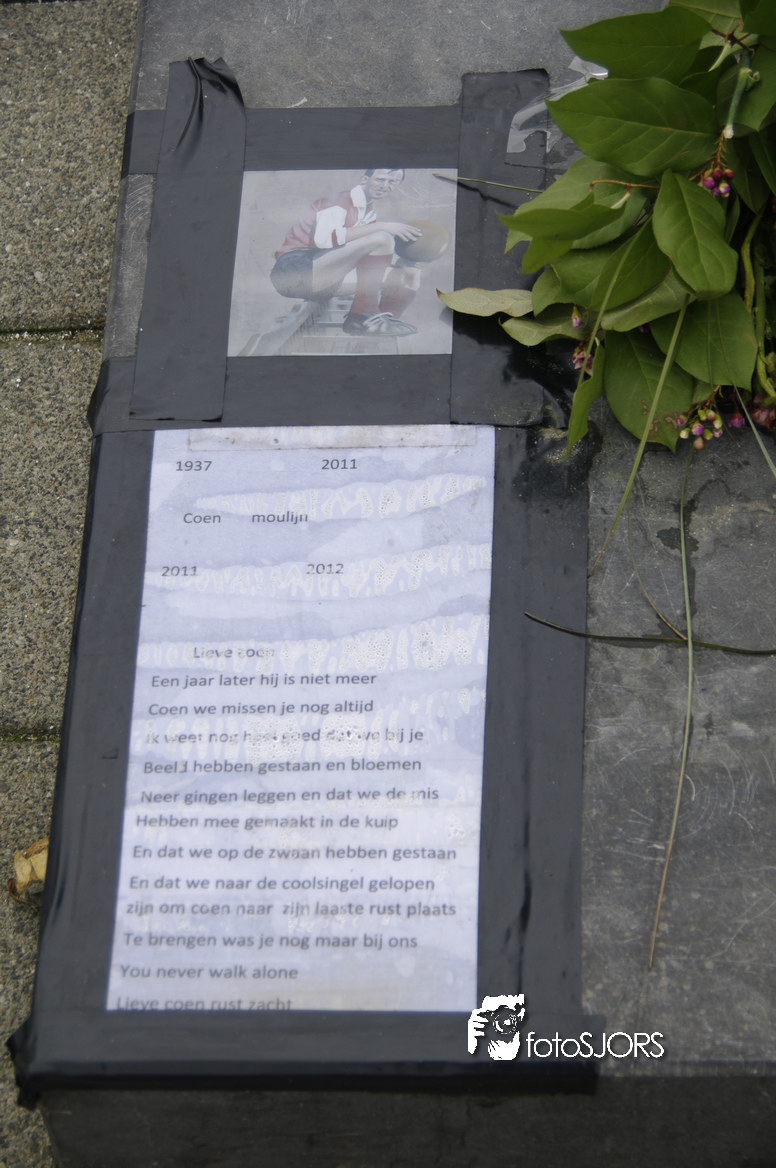 1937 2011
Coen moulijn
2011 2012
Lieve coen
Een jaar later hij is niet meer
Coen we missen je nog altijd
Ik weet nog heel goed dat we bij je
Beeld hebben gestaan en bloemen
Neer gingen leggen en dat we de mis
Hebben mee gemaakt in de kuip
En dat we op de zwaan hebben gestaan
En dat we naar de coolsingel gelopen
zijn om coen naar zijn laaste rust plaats
Te brengen was je nog maar bij ons
You never walk alone
Lieve coen rust zacht
fotoSJORS